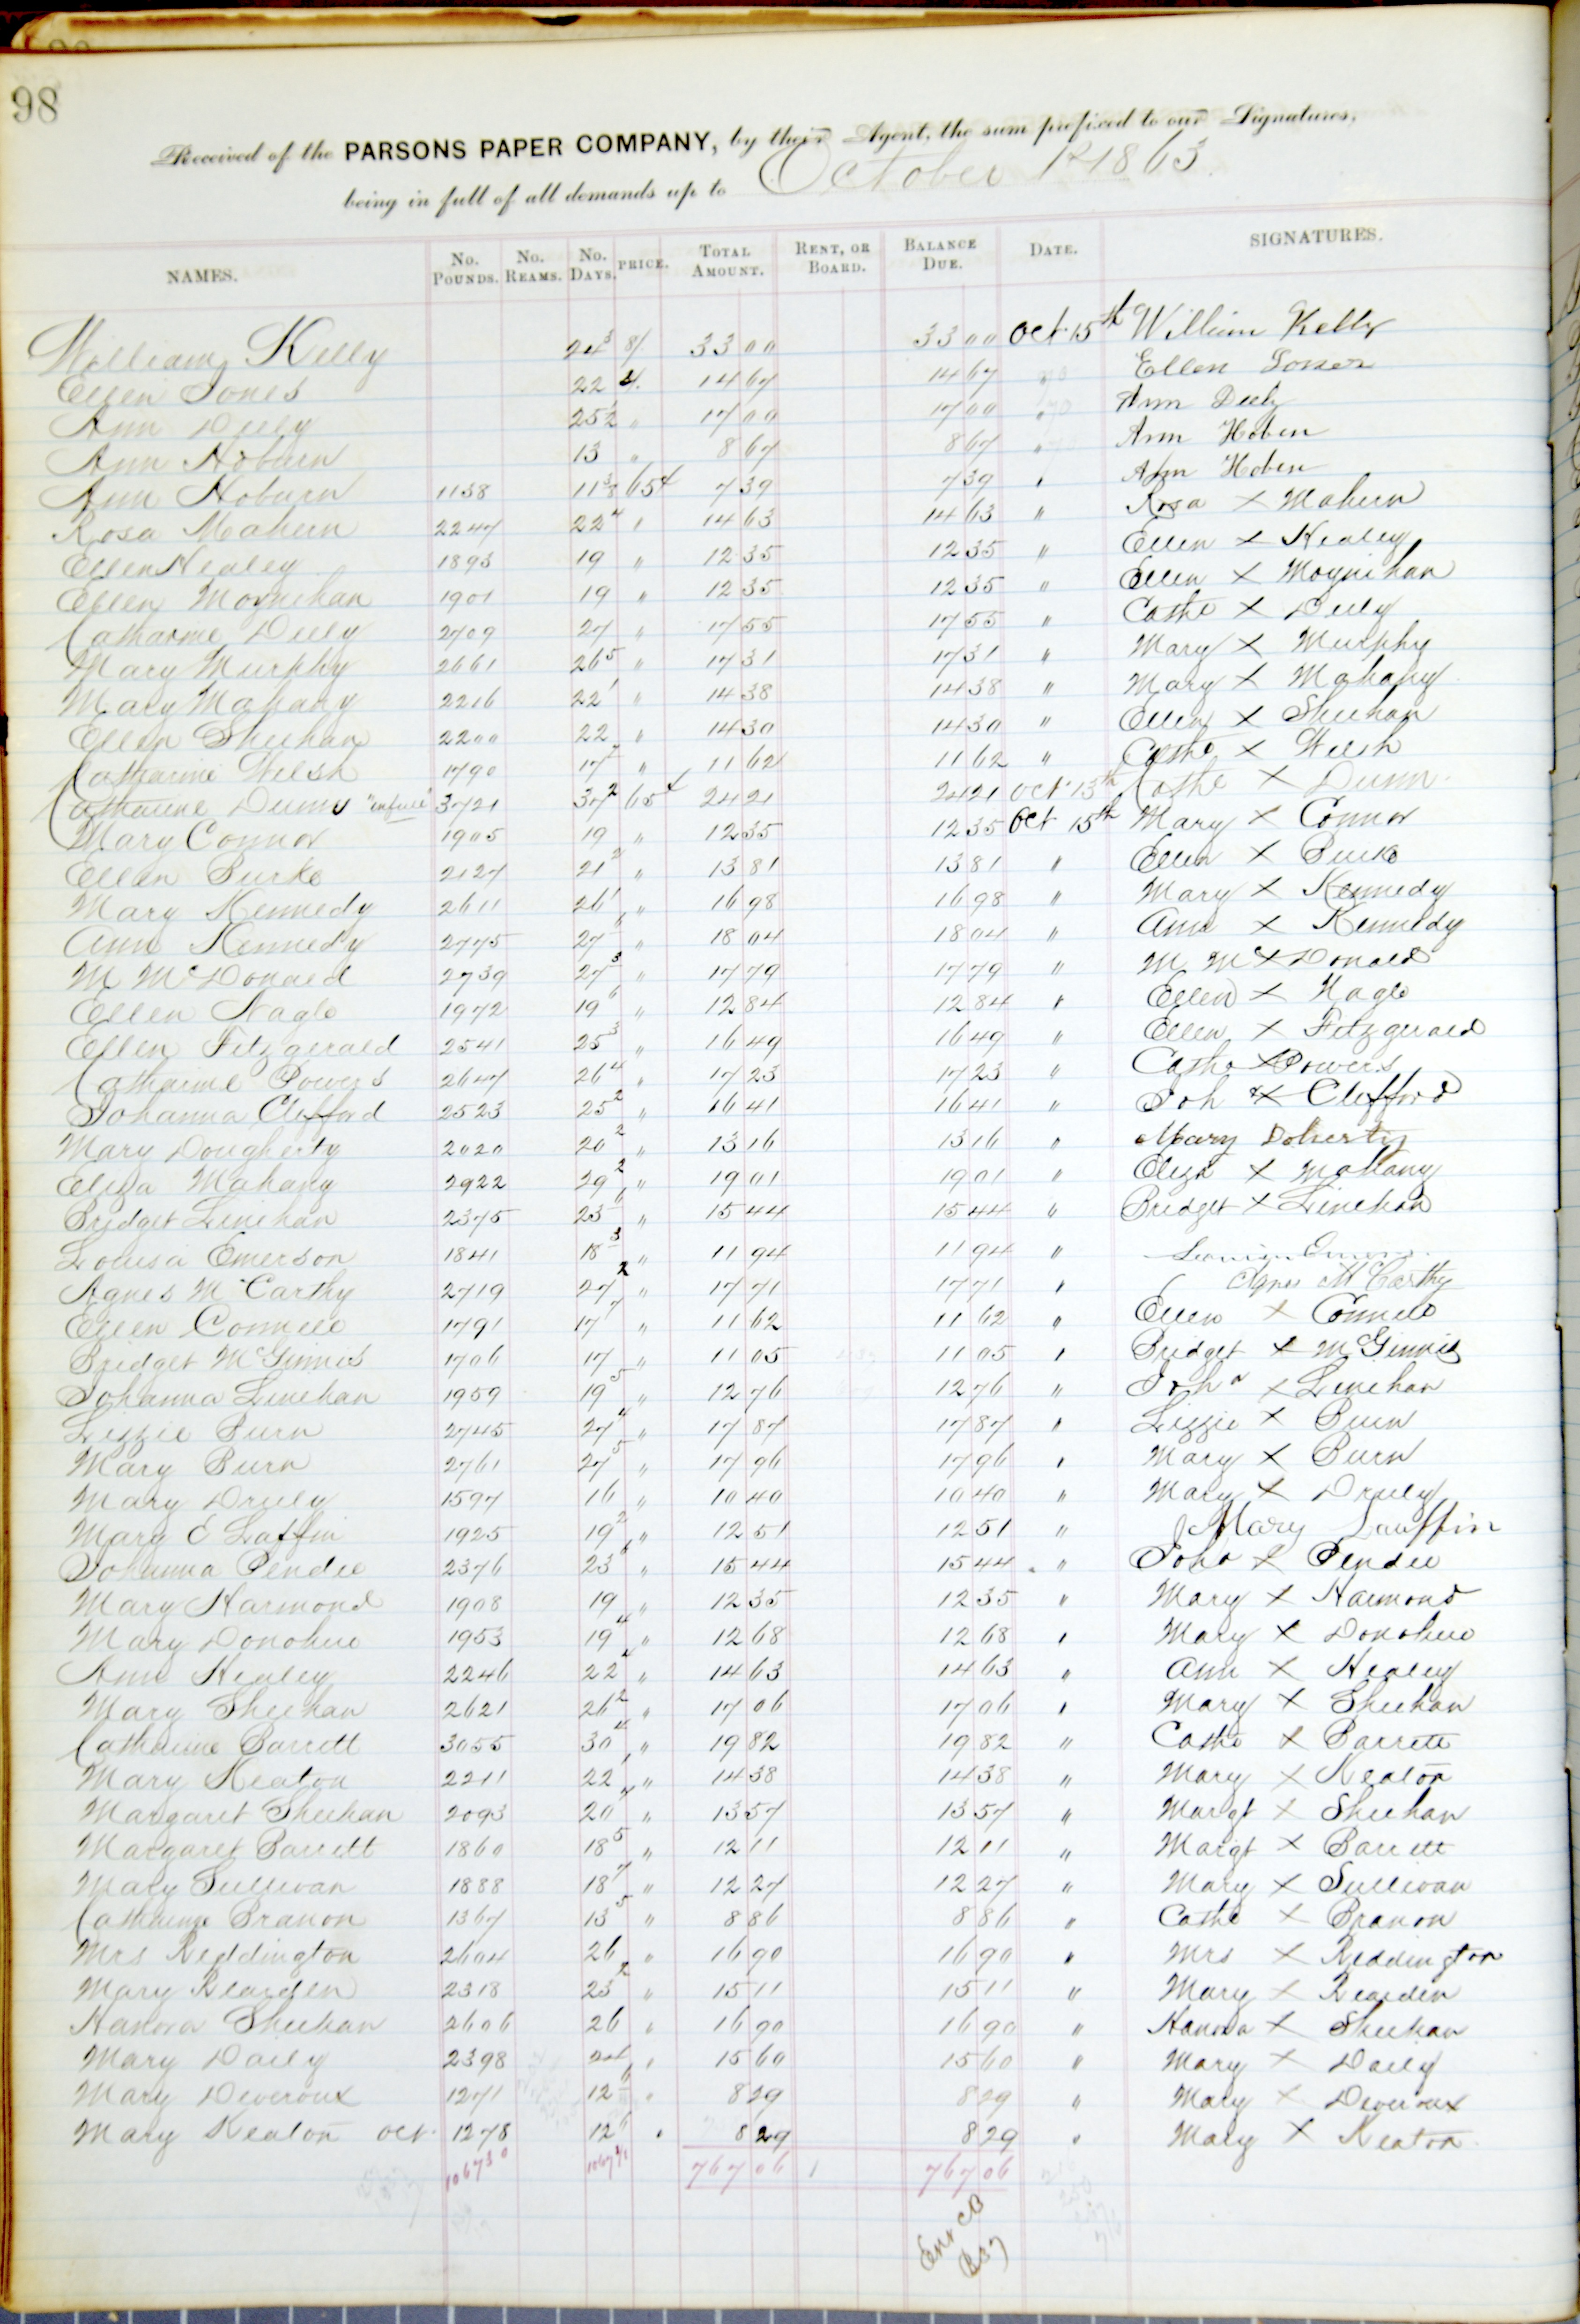 98
Received of the PARSONS PAPER COMPANY, by their Agent, the sum prefixed to our Signatures,
being in full of all demands up to October 1st 1863.
NAMES. No. POUNDS. No. REAMS. No. DAYS. PRICE. TOTAL AMOUNT. RENT, OR BOARD. BALANCE DUE. DATE. SIGNATURES.
William Kelly 24 3 8/ 33 00 33 00 Oct 15th William Kelly
Ellen Jones 22 4/ 14 67 14 67 " Ellen Jones
Ann Deely 25 1/2 " 17 00 17 00 " Ann Deely
Ann Hoburn 13 " 8 67 8 67 " Ann Hoben
Ann Hoburn 1138 11 3/8 65¢ 7 39 7 39 " Ann Hoben
Rosa Mahern 2247 22 4 " 14 63 14 63 " Rosa X Mahern
Ellen Healey 1893 19 " 12 35 12 35 " Ellen X Healey
Ellen Moynihan 1901 19 " 12 35 12 35 " Ellen X Moynihan
Catharine Deely 2709 27 " 17 55 17 55 " Cathe X Deely
Mary Murphy 2661 26 5 " 17 31 17 31 " Mary X Murphy
Mary Mahany 2216 22 1 " 14 38 14 38 " Mary X Mahany
Ellen Sheehan 2200 22 " 14 30 14 30 " Ellen X Sheehan
Catharine Welsh 1790 17 7 " 11 62 11 62 " Cathe X Welsh
Catharine Dunn "in full" 3721 37 2 65¢ 24 21 24 21 Oct 13th Cathe X Dunn
Mary Connor 1905 19 " 12 35 12 35 Oct 15th Mary X Connor
Ellen Burke 2127 21 2 " 13 81 13 81 " Ellen X Burke
Mary Kennedy 2611 26 1 " 16 98 16 98 " Mary X Kennedy
Ann Kennedy 2775 27 6 " 18 04 18 04 " Ann X Kennedy
M McDonald 2739 27 3 " 17 79 17 79 " M McX Donald
Ellen Nagle 1972 19 6 " 12 84 12 84 " Ellen X Nagle
Ellen Fitzgerald 2541 25 3 " 16 49 16 49 " Ellen X Fitzgerald
Catharine Powers 2647 26 4 " 17 23 17 23 " Cathe X Powers
Johanna Clifford 2523 25 2 " 16 41 16 41 " Joh X Clifford
Mary Dougherty 2020 20 2 " 13 16 13 16 " Mary Doherty
Eliza Mahany 2922 29 2 " 19 01 19 01 " Eliza X Mahany
Bridget Linehan 2375 23 6 " 15 44 15 44 " Bridget X Linehan
Louisa Emerson 1841 18 3 " 11 94 11 94 "
Agnes McCarthy 2719 27 2 " 17 71 17 71 " Agnes McCarthy
Ellen Connell 1791 17 7 " 11 62 11 62 " Ellen X Connell
Bridget McGinnis 1706 17 " 11 05 11 05 " Bridget X McGinnis
Johanna Linehan 1959 19 5 " 12 76 12 76 " Joha X Linehan
Lizzie Burn 2745 27 4 " 17 87 17 87 " Lizzie X Burn
Mary Burn 2761 27 5 " 17 96 17 96 " Mary X Burn
Mary Druly 1597 16 " 10 40 10 40 " Mary X Druly
Mary E Laffin 1925 19 2 " 12 51 12 51 " Mary Lauffin
Johanna Pendee 2376 23 6 " 15 44 15 44 " Joha X Pendee
Mary Harmond 1908 19 " 12 35 12 35 " Mary X Harmond
Mary Donohue 1953 19 4 " 12 68 12 68 " Mary X Donohue
Ann Healey 2246 22 4 " 14 63 14 63 " Ann X Healey
Mary Sheehan 2621 26 2 " 17 06 17 06 " Mary X Sheehan
Catharine Barrett 3055 30 4 " 19 82 19 82 " Cathe X Barrett
Mary Keaton 2211 22 1 " 14 38 14 38 " Mary X Keaton
Margaret Sheehan 2093 20 7 " 13 57 13 57 " Margt X Sheehan
Margaret Barrett 1860 18 5 " 12 11 12 11 " Margt X Barrett
Mary Sullivan 1888 18 7 " 12 27 12 27 " Mary X Sullivan
Catharine Branon 1367 13 5 " 8 86 8 86 " Cathe X Branon
Mrs Reddington 2604 26 " 16 90 16 90 " Mrs X Reddington
Mary Rearden 2318 23 2 " 15 11 15 11 " Mary X Rearden
Hanora Sheehan 2606 26 " 16 90 16 90 " Hanora X Sheehan
Mary Daily 2398 24 " 15 60 15 60 " Mary X Daily
Mary Deveroux 1271 12 6 " 8 29 8 29 " Mary X Deveroux
Mary Keaton Oct. 1278 12 6 " 8 29 8 29 " Mary X Keaton
106730 767 06 767 06
Ent CB